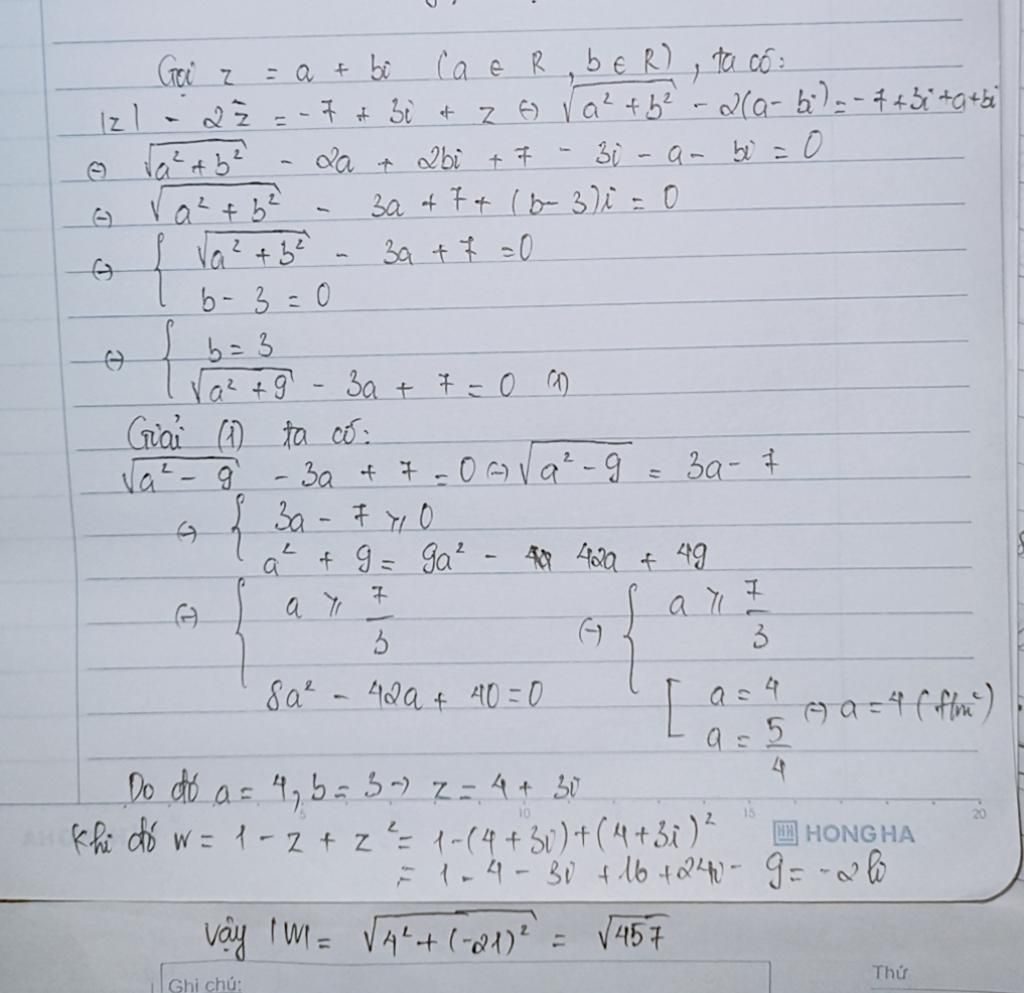 Gọi z = a + bi (a ∈ R, b ∈ R), ta có:
|z| - 2z̄ = -7 + 3i + z ⇔ √(a² + b²) - 2(a - bi) = -7 + 3i + a + bi
⇔ √(a² + b²) - 2a + 2bi + 7 - 3i - a - bi = 0
⇔ √(a² + b²) - 3a + 7 + (b - 3)i = 0
⇔ { √(a² + b²) - 3a + 7 = 0
b - 3 = 0
⇔ { b = 3
√(a² + 9) - 3a + 7 = 0 (1)
Giải (1) ta có:
√(a² - 9) - 3a + 7 = 0 ⇔ √(a² - 9) = 3a - 7
⇔ { 3a - 7 ≥ 0
a² + 9 = 9a² - 42a + 49
⇔ { a ≥ 7/3 ⇔ { a ≥ 7/3
8a² - 42a + 40 = 0 [ a = 4 ⇔ a = 4 (t/m)
a = 5/4
Do đó a = 4, b = 3 → z = 4 + 3i
Khi đó w = 1 - z + z² = 1 - (4 + 3i) + (4 + 3i)²
HONG HA
5 10 15 20
= 1 - 4 - 3i + 16 + 24i - 9 =
Vậy |W| = √(4² + (-21)²) = √457
Ghi chú:
Thứ